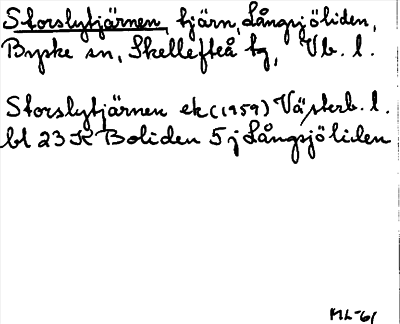 Storslytjärnen, tjärn, Långsjöliden,
Byske sn, Skellefteå tg, Vb. l.
Storslytjärnen ek (1959) Västerb. l.
bl 23 K Boliden 5 j Långsjöliden
ML-61